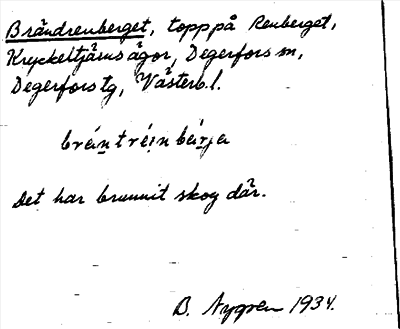 Brändrenberget, topp på Renberget,
Kryckeltjärns ägor, Degerfors sn,
Degerfors tg, Västerb. l.
brä́ntrein bärja
Det har brunnit skog där.
B. Nygren 1934.